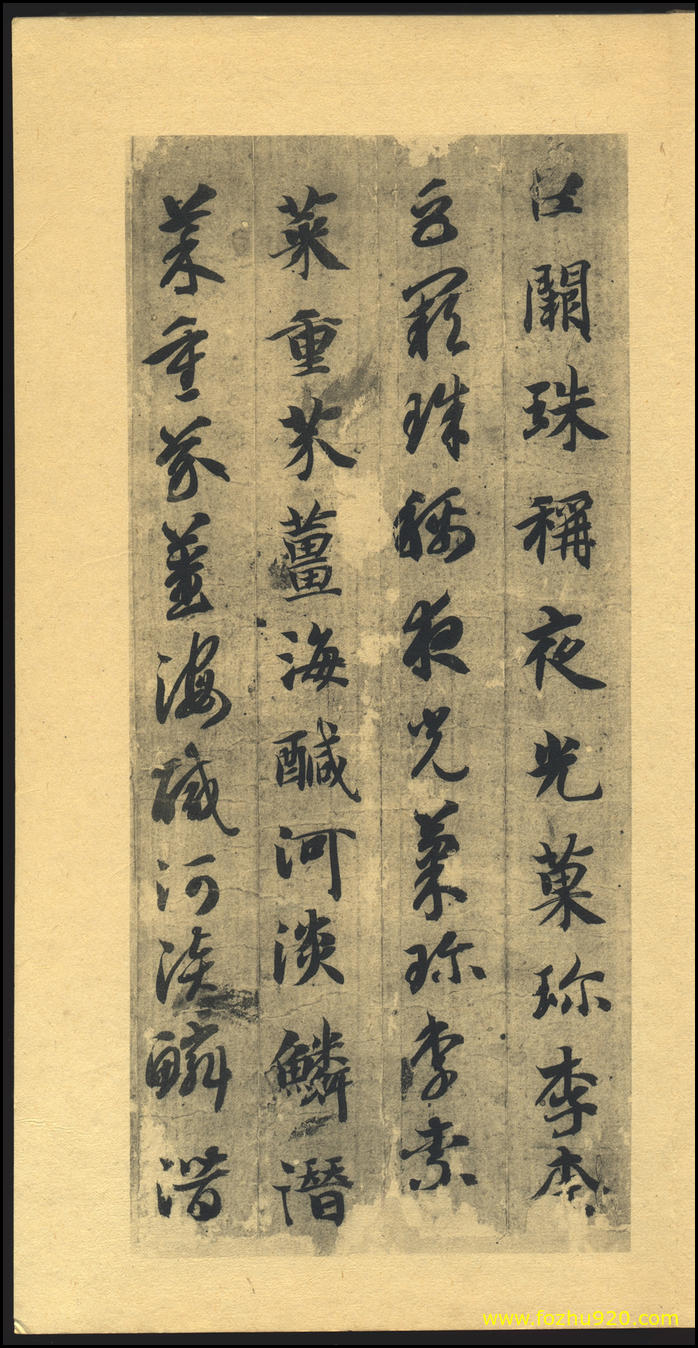 巨闕珠稱夜光菓珍李柰
巨闕珠稱夜光菓珍李柰
菜重芥薑海醎河淡鱗潛
菜重芥薑海醎河淡鱗潛
www.fozhu920.com